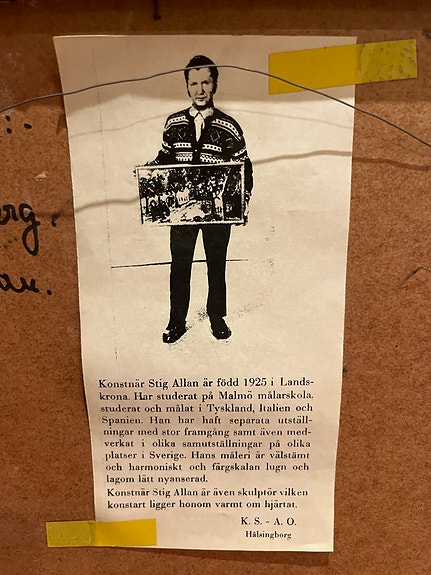 Konstnär Stig Allan är född 1925 i Lands-
krona. Har studerat på Malmö målarskola.
studerat och målat i Tyskland, Italien och
Spanien. Han har haft separata utställ-
ningar med stor framgång samt även med-
verkat i olika samutställningar på olika
platser i Sverige. Hans måleri är välstämt
och harmoniskt och färgskalan lugn och
lagom lätt nyanserad.
Konstnär Stig Allan är även skulptör vilken
konstart ligger honom varmt om hjärtat.
K. S. - A. O.
Hälsingborg